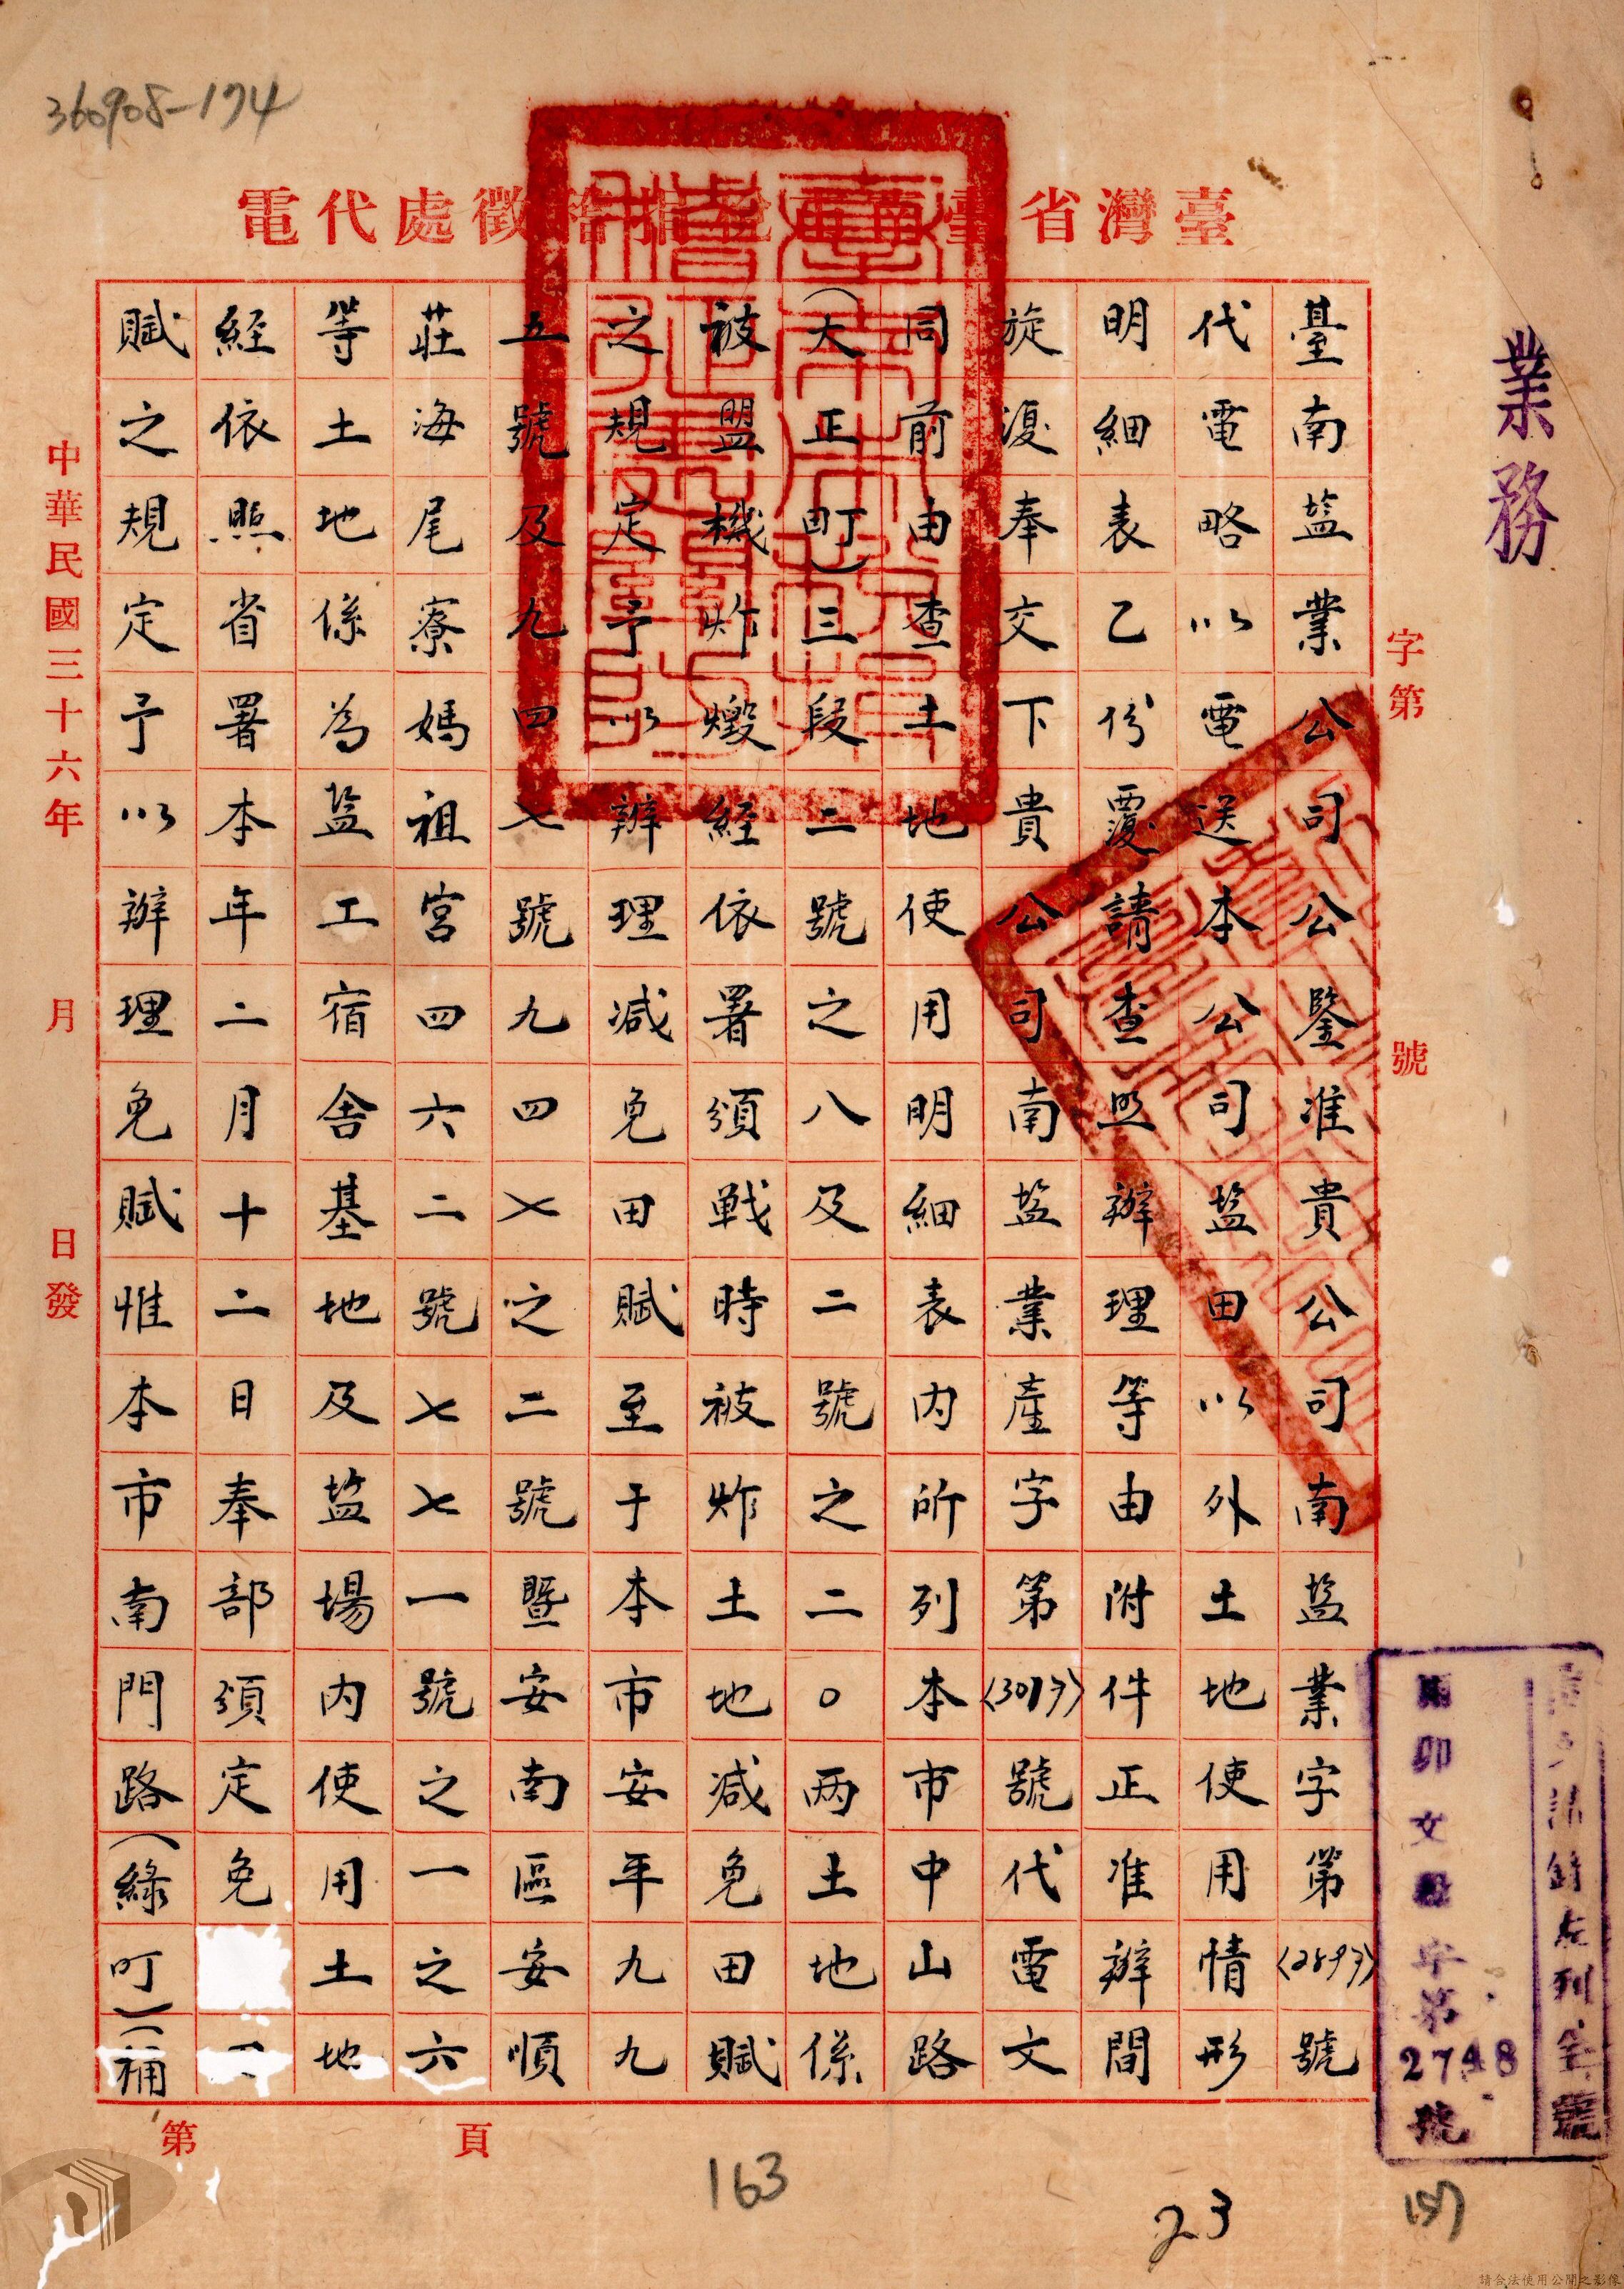 360908-174
臺灣省臺南市稅捐稽徵處代電
業務
字第　號
臺南盐業公司公鑒准貴公司南盐業字第(2897)號
代電略以電送本公司盐田以外土地使用情形
明細表乙份覆請查照辦理等由附件正准辦間
旋復奉交下貴公司南盐業產字第(3017)號代電文
同前由查土地使用明細表內所列本市中山路
(大正町)三段二號之八及二號之二〇两土地係
被盟機炸燬經依署頒戰時被炸土地减免田賦
之規定予以辦理减免田賦至于本市安平九九
五號及九四七號九四七之二號暨安南區安順
莊海尾寮媽祖宮四六二號七七一號之一之六
等土地係為盐工宿舍基地及盐場內使用土地
經依照省署本年二月十二日奉部頒定免
賦之規定予以辦理免賦惟本市南門路(綠町)(桶
中華民國三十六年　月　日發
第　頁
163
23
157
字第
2748
號
請合法使用公開之影像